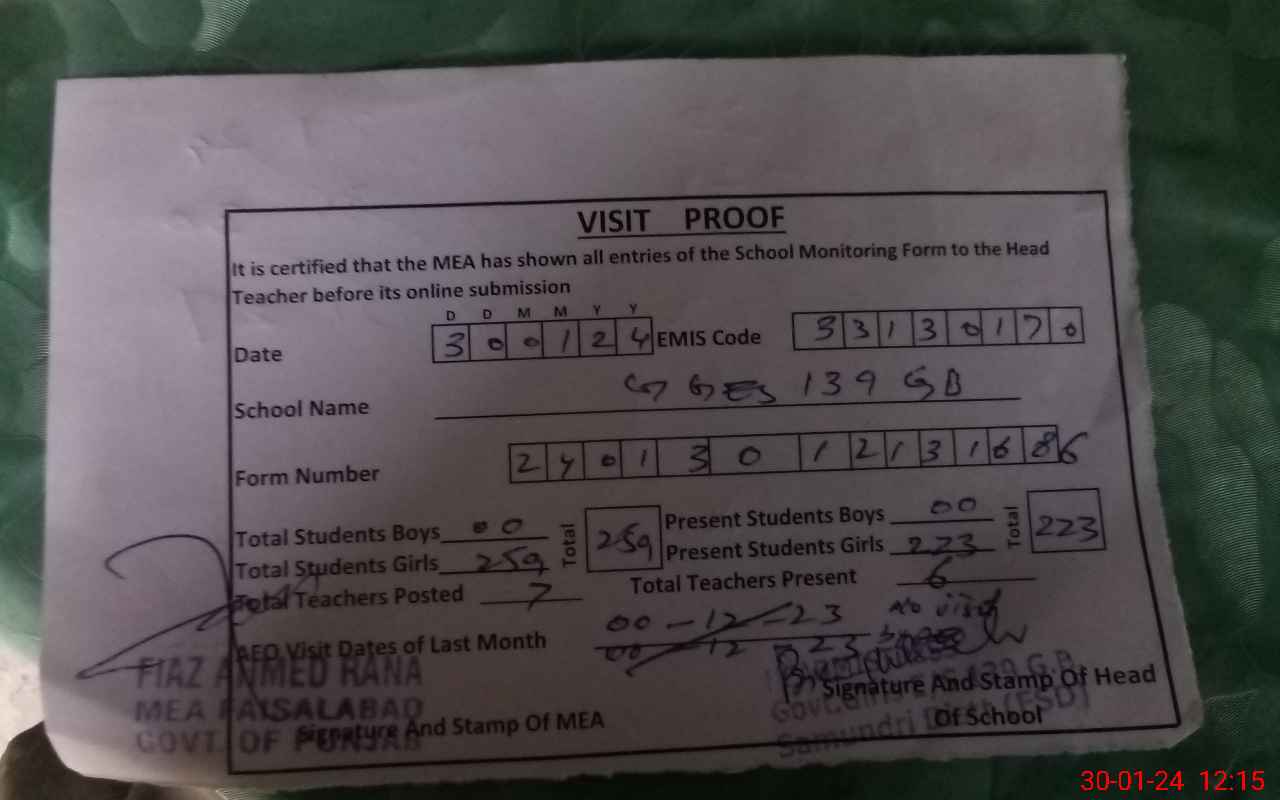 VISIT PROOF
It is certified that the MEA has shown all entries of the School Monitoring Form to the Head
Teacher before its online submission
D D M M Y Y
Date 3 0 0 1 2 4 EMIS Code 3 3 1 3 0 1 7 0
School Name GGES 139 GB
Form Number 2 4 0 1 3 0 1 2 1 3 1 6 8 6
Total Students Boys 00 Total 259 Present Students Boys 00 Total 223
Total Students Girls 259 Present Students Girls 223
Total Teachers Posted 7 Total Teachers Present 6
AEO Visit Dates of Last Month 00-12-23 no visit
00 12 23
FIAZ AHMED RANA
MEA FAISALABAD
GOVT. OF PUNJAB
Signature And Stamp Of MEA
Signature And Stamp Of Head
Of School
G.B
Govt.
Samundri Distt (FSD)
30-01-24 12:15